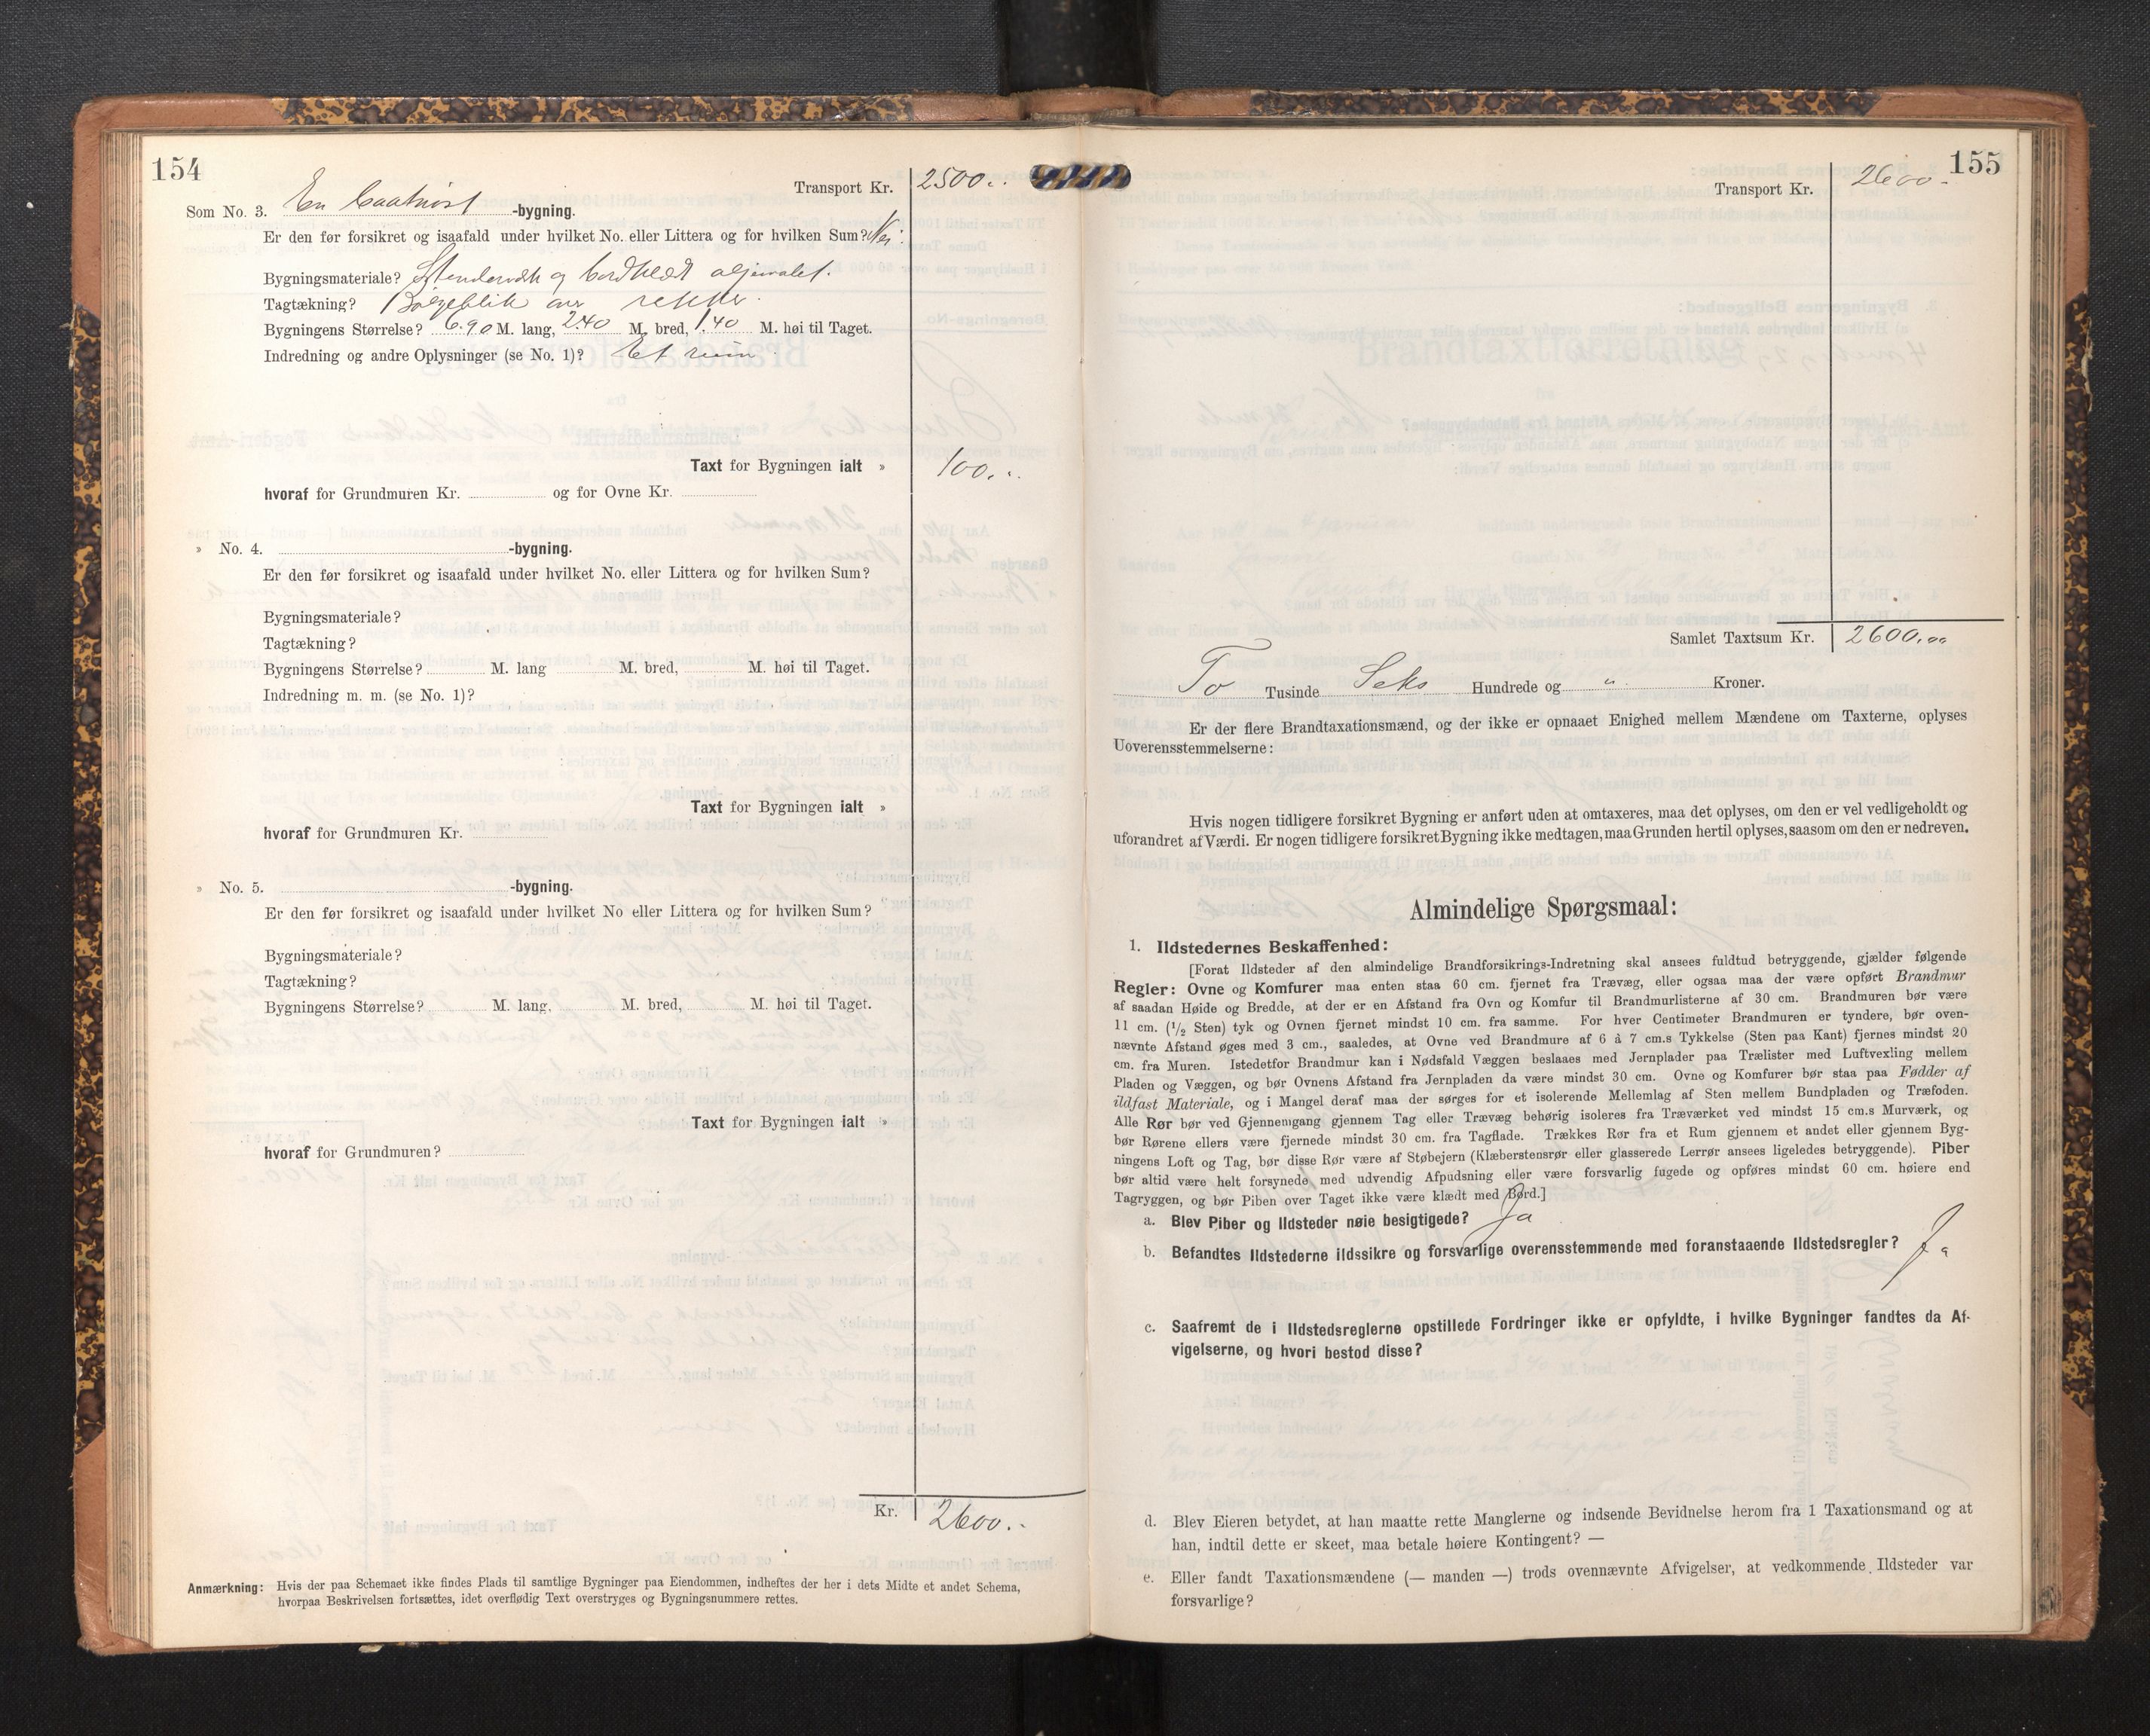 154
Transport Kr. 2500..
Som No. 3. En baatnøst -bygning.
Er den før forsikret og isaafald under hvilket No. eller Littera og for hvilken Sum? Nei.
Bygningsmateriale? Stenderverk og bordklædt
Tagtækning? Bølgeblik over
Bygningens Størrelse? 6.90 M. lang, 2.40 M. bred, 1.40 M. høi til Taget.
Indredning og andre Oplysninger (se No. 1)? Et rum.
Taxt for Bygningen ialt » 100..
hvoraf for Grundmuren Kr. og for Ovne Kr.
» No. 4. -bygning.
Er den før forsikret og isaafald under hvilket No. eller Littera og for hvilken Sum?
Bygningsmateriale?
Tagtækning?
Bygningens Størrelse? M. lang M. bred, M. høi til Taget.
Indredning m. m. (se No. 1)?
Taxt for Bygningen ialt »
hvoraf for Grundmuren Kr.
» No. 5. -bygning.
Er den før forsikret og isaafald under hvilket No eller Littera og for hvilken Sum?
Bygningsmateriale?
Tagtækning?
Bygningens Størrelse? M. lang, M. bred, M. høi til Taget.
Taxt for Bygningen ialt »
hvoraf for Grundmuren?
Kr. 2600..
Anmærkning: Hvis der paa Schemaet ikke findes Plads til samtlige Bygninger paa Eiendommen, indheftes der her i dets Midte et andet Schema,
hvorpaa Beskrivelsen fortsættes, idet overflødig Text overstryges og Bygningsnummere rettes.
155
Transport Kr. 2600.
Samlet Taxtsum Kr. 2600.00
To Tusinde Seks Hundrede og " Kroner.
Er der flere Brandtaxationsmænd, og der ikke er opnaaet Enighed mellem Mændene om Taxterne, oplyses
Uoverensstemmelserne:
Hvis nogen tidligere forsikret Bygning er anført uden at omtaxeres, maa det oplyses, om den er vel vedligeholdt og
uforandret af Værdi. Er nogen tidligere forsikret Bygning ikke medtagen, maa Grunden hertil oplyses, saasom om den er nedreven.
Almindelige Spørgsmaal:
1. Ildstedernes Beskaffenhed:
[Forat Ildsteder af den almindelige Brandforsikrings-Indretning skal ansees fuldtud betryggende, gjælder følgende
Regler: Ovne og Komfurer maa enten staa 60 cm. fjernet fra Trævæg, eller ogsaa maa der være opført Brandmur
af saadan Høide og Bredde, at der er en Afstand fra Ovn og Komfur til Brandmurlisterne af 30 cm. Brandmuren bør være
11 cm. (1/2 Sten) tyk og Ovnen fjernet mindst 10 cm. fra samme. For hver Centimeter Brandmuren er tyndere, bør oven-
nævnte Afstand øges med 3 cm., saaledes, at Ovne ved Brandmure af 6 à 7 cm.s Tykkelse (Sten paa Kant) fjernes mindst 20
cm. fra Muren. Istedetfor Brandmur kan i Nødsfald Væggen beslaaes med Jernplader paa Trælister med Luftvexling mellem
Pladen og Væggen, og bør Ovnens Afstand fra Jernpladen da være mindst 30 cm. Ovne og Komfurer bør staa paa Fødder af
ildfast Materiale, og i Mangel deraf maa der sørges for et isolerende Mellemlag af Sten mellem Bundpladen og Træfoden.
Alle Rør bør ved Gjennemgang gjennem Tag eller Trævæg behørig isoleres fra Træværket ved mindst 15 cm.s Murværk, og
bør Rørene ellers være fjernede mindst 30 cm. fra Tagflade. Trækkes Rør fra et Rum gjennem et andet eller gjennem Byg-
ningens Loft og Tag, bør disse Rør være af Støbejern (Klæberstensrør eller glasserede Lerrør ansees ligeledes betryggende). Piber
bør altid være helt forsynede med udvendig Afpudsning eller være forsvarlig fugede og opføres mindst 60 cm. høiere end
Tagryggen, og bør Piben over Taget ikke være klædt med Bord.]
a. Blev Piber og Ildsteder nøie besigtigede? Ja
b. Befandtes Ildstederne ildssikre og forsvarlige overensstemmende med foranstaaende Ildstedsregler? Ja
c. Saafremt de i Ildstedsreglerne opstillede Fordringer ikke er opfyldte, i hvilke Bygninger fandtes da Af-
vigelserne, og hvori bestod disse?
d. Blev Eieren betydet, at han maatte rette Manglerne og indsende Bevidnelse herom fra 1 Taxationsmand og at
han, indtil dette er skeet, maa betale høiere Kontingent? —
e. Eller fandt Taxationsmændene (— manden —) trods ovennævnte Afvigelser, at vedkommende Ildsteder var
forsvarlige?